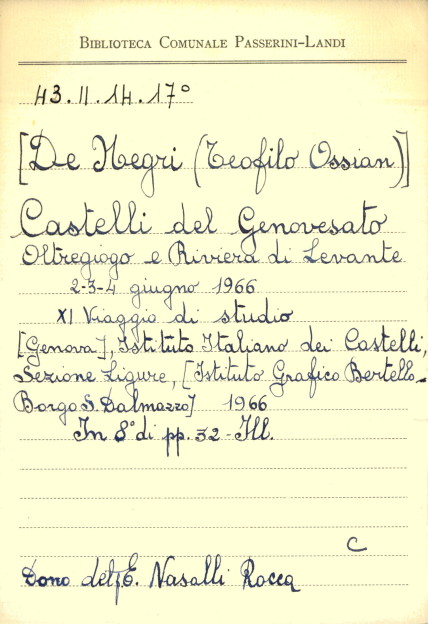 BIBLIOTECA COMUNALE PASSERINI-LANDI
43.II.14.17°
[De Negri (Teofilo Ossian)]
Castelli del Genovesato
Oltregiogo e Riviera di Levante
2-3-4 giugno 1966
XI Viaggio di studio
[Genova], Istituto Italiano dei Castelli,
Sezione Ligure, [Istituto Grafico Bertello-
Borgo S. Dalmazzo] 1966
In 8° di pp. 32 - Ill.
C
Dono del E. Nasalli Rocca